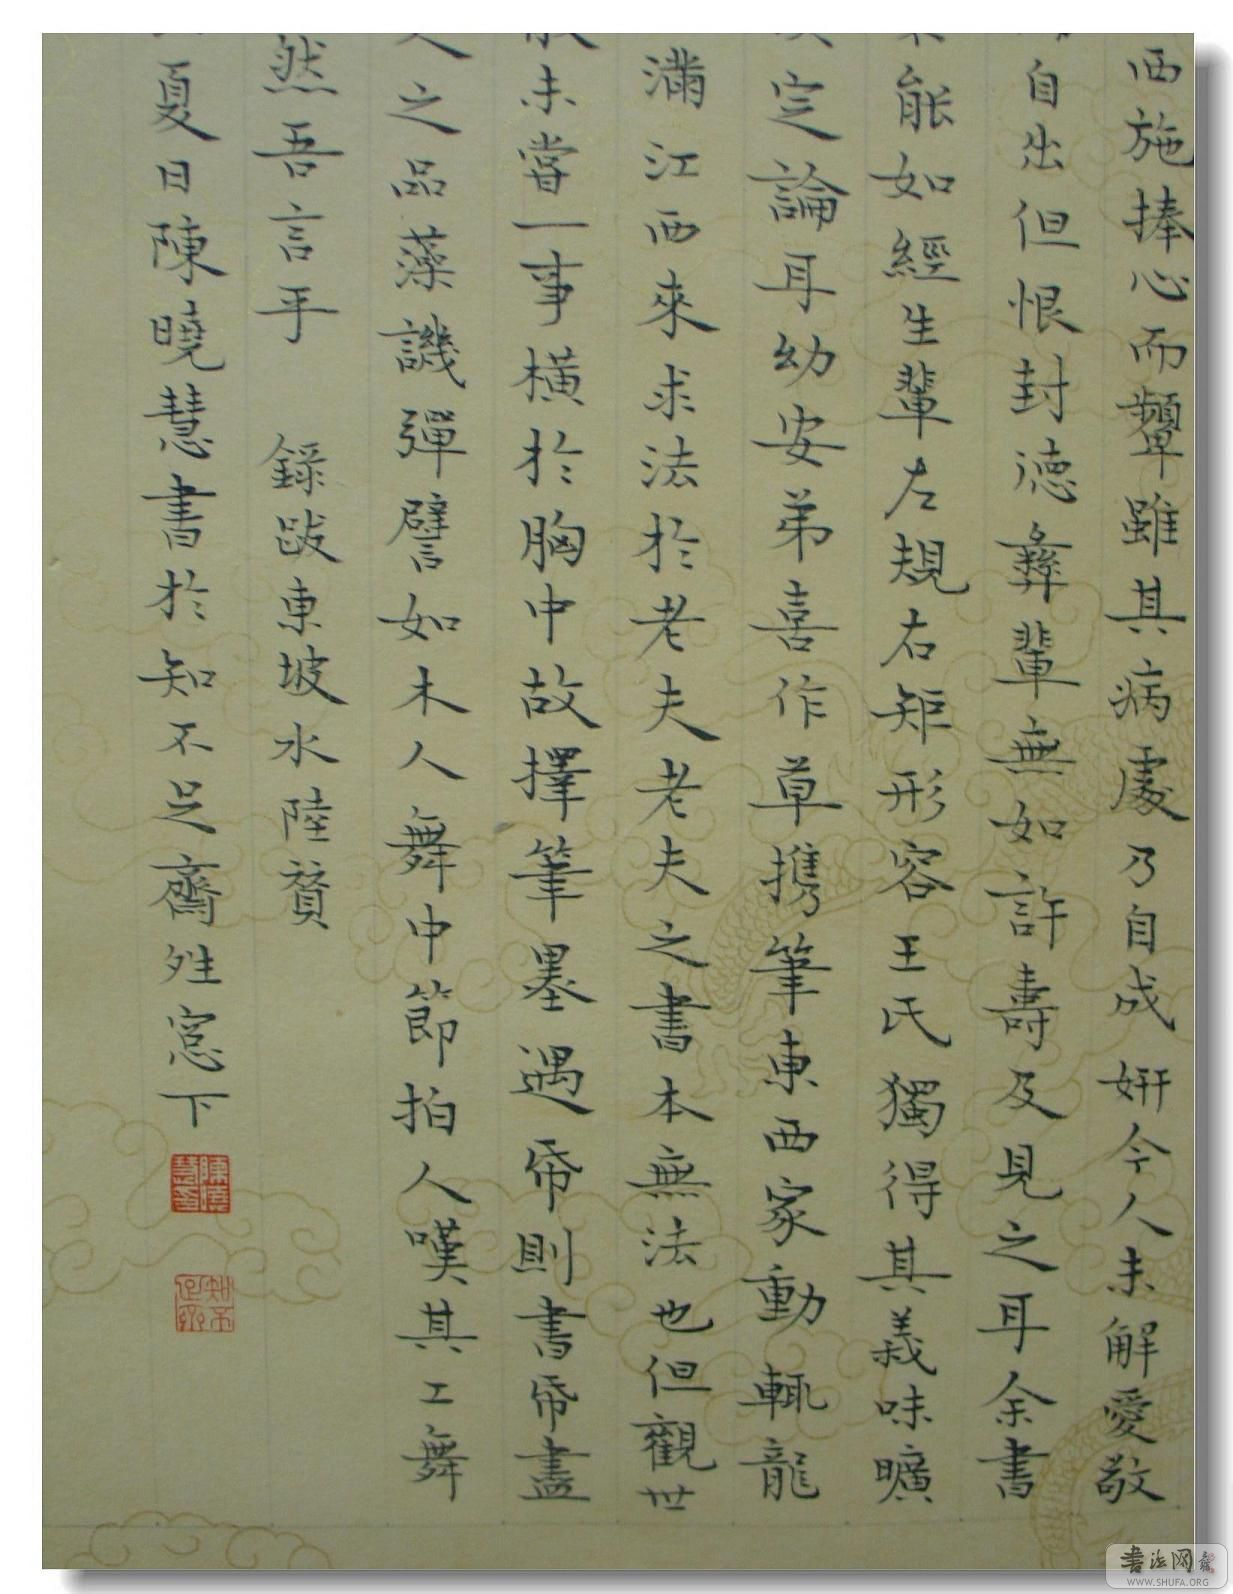 西施捧心而顰雖其病處乃自成妍今人未解愛敬
自出但恨封德彝輩無如許壽及見之耳余書
能如經生輩左規右矩形容王氏獨得其義味曠
定論耳幼安弟喜作草携筆東西家動輒龍
滿江西來求法於老夫老夫之書本無法也但觀世
未嘗一事橫於胸中故擇筆墨遇帋則書帋盡
之品藻譏彈譬如木人舞中節拍人嘆其工舞
然吾言乎 錄跋東坡水陸贊
夏日陳曉慧書於知不足齋姓窓下
陳曉慧書
知不足齋
書法网
WWW.SHUFA.ORG